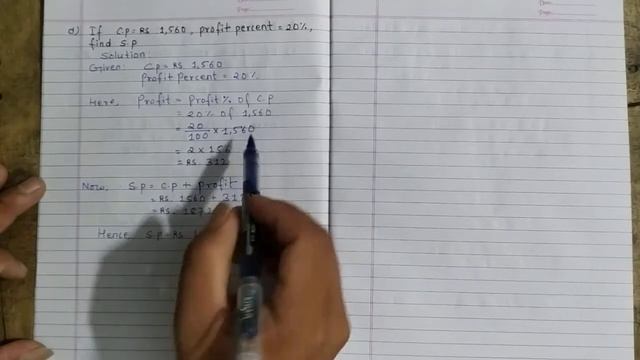 d) If C.p = RS 1,560, profit percent = 20%,
find S.p
Solution:
Given: C.p = RS. 1,560
profit percent = 20%
Here, Profit = Profit % of C.p
= 20% of 1,560
= 20/100 × 1,560
= 2 × 156
= RS. 312
Now, S.p = C.p + profit
= RS. 1560 + 31
= RS. 187
Hence, S.p = RS.